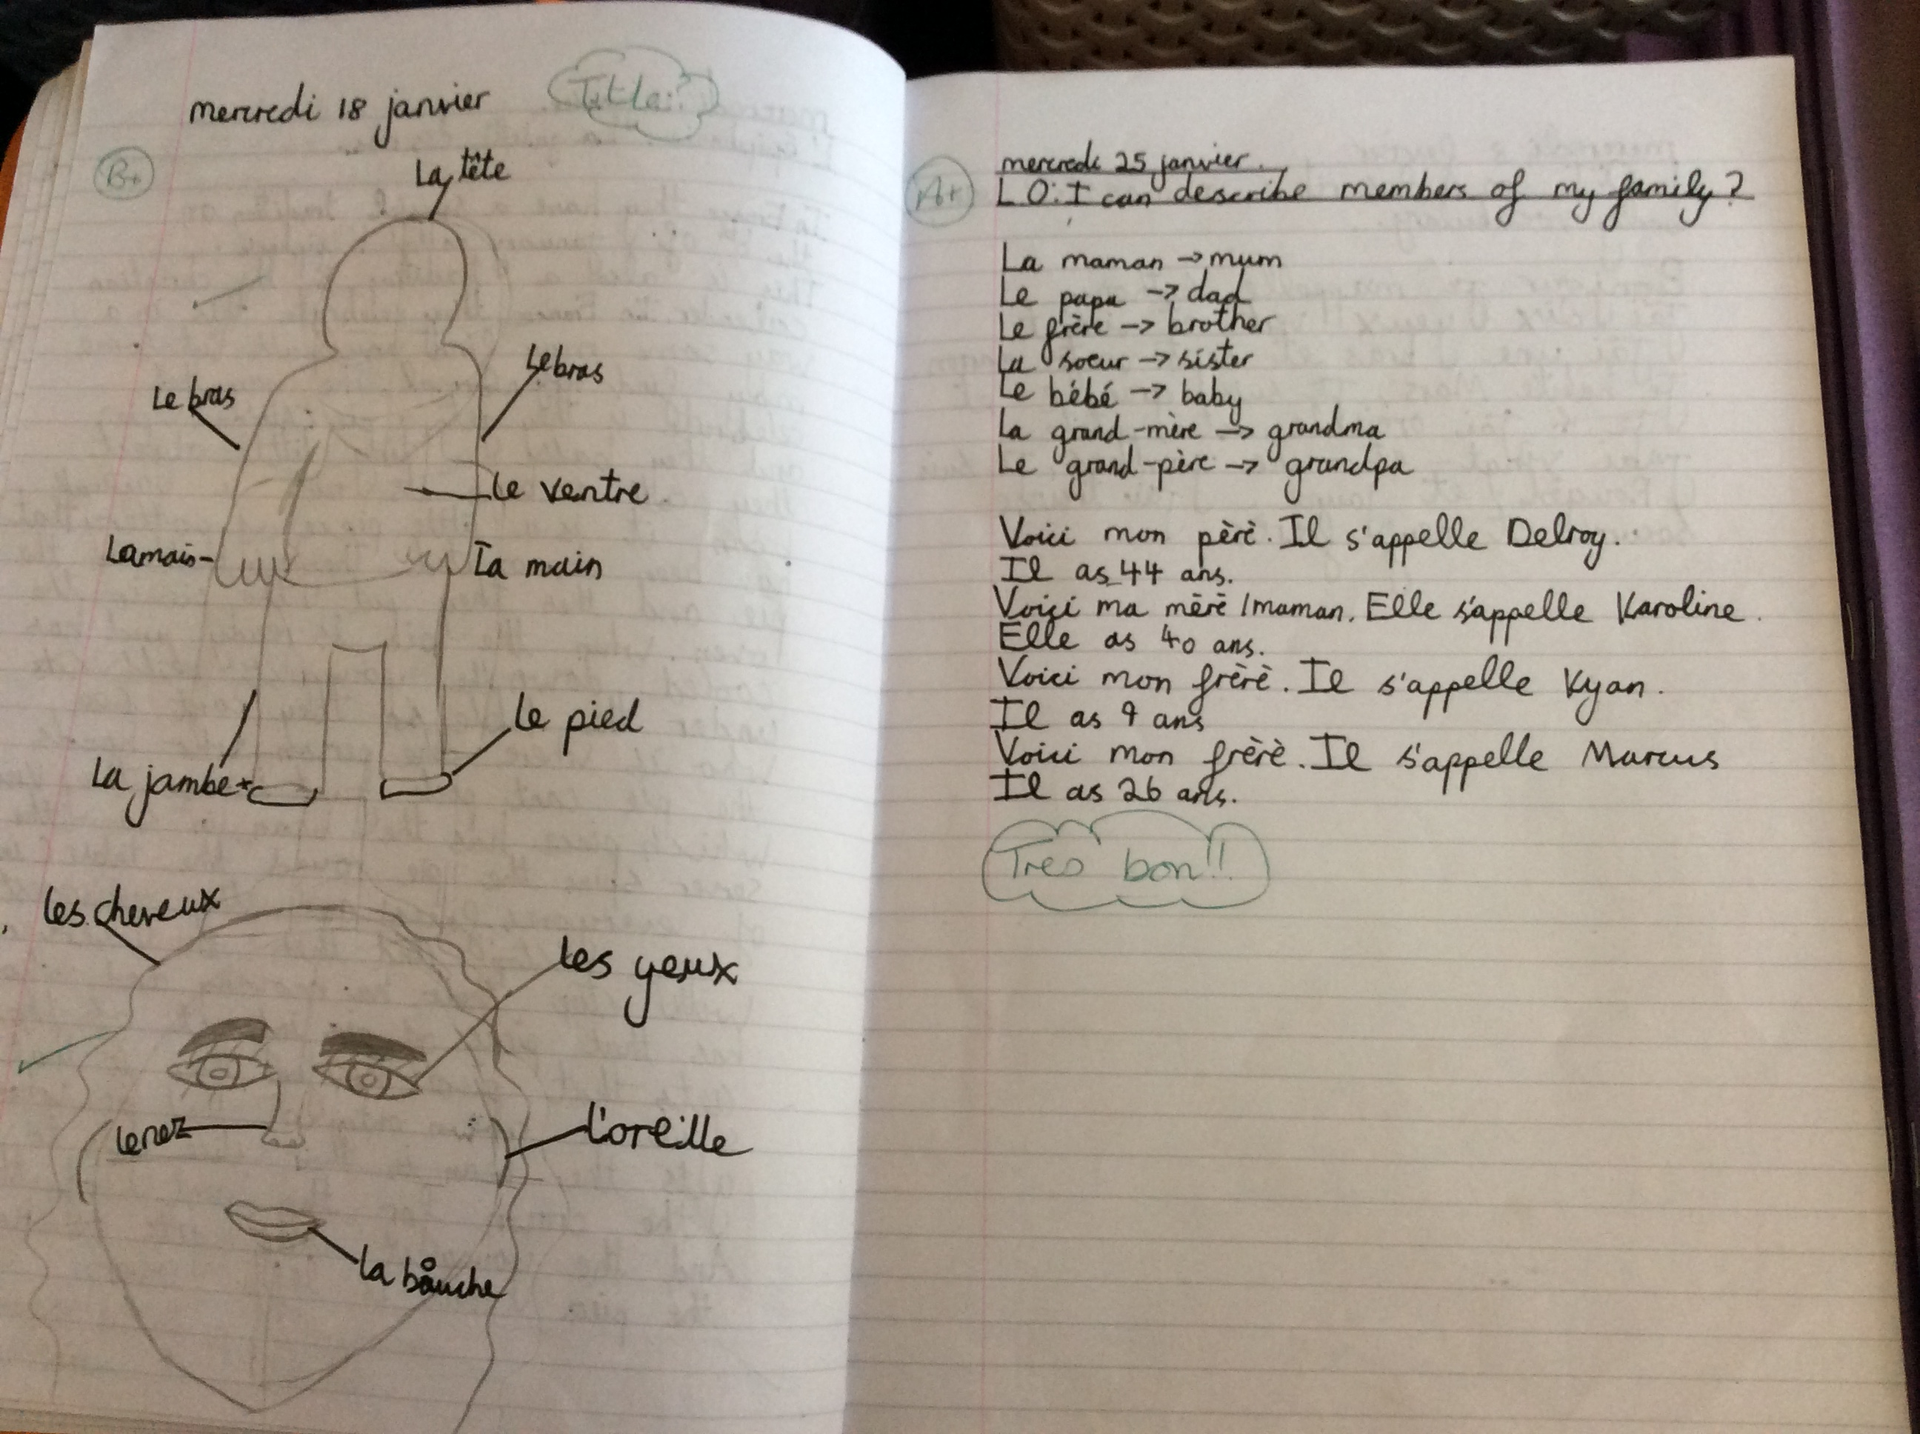 mercredi 18 janvier
Title?
B+
La tête
Le bras
Le bras
le ventre
La mais
La main
Le pied
La jambe
les cheveux
les yeux
le nez
l'oreille
la bouche
mercredi 25 janvier.
A+
L.O: I can describe members of my family?
La maman -> mum
Le papa -> dad
Le frère -> brother
La soeur -> sister
Le bébé -> baby
La grand-mère -> grandma
Le grand-père -> grandpa
Voici mon pèrè. Il s'appelle Delroy.
Il as 44 ans.
Voici ma mèrè /maman. Elle s'appelle Karoline.
Elle as 40 ans.
Voici mon frèrè. Il s'appelle Kyan.
Il as 9 ans
Voici mon frèrè. Il s'appelle Marcus
Il as 26 ans.
Tres bon!!